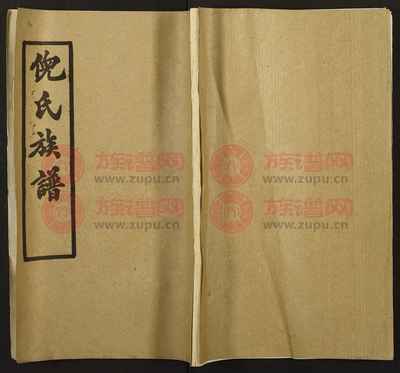 倪氏族譜
族谱网
www.zupu.cn
族谱网
www.zupu.cn
族谱网
www.zupu.cn
族谱网
www.zupu.cn